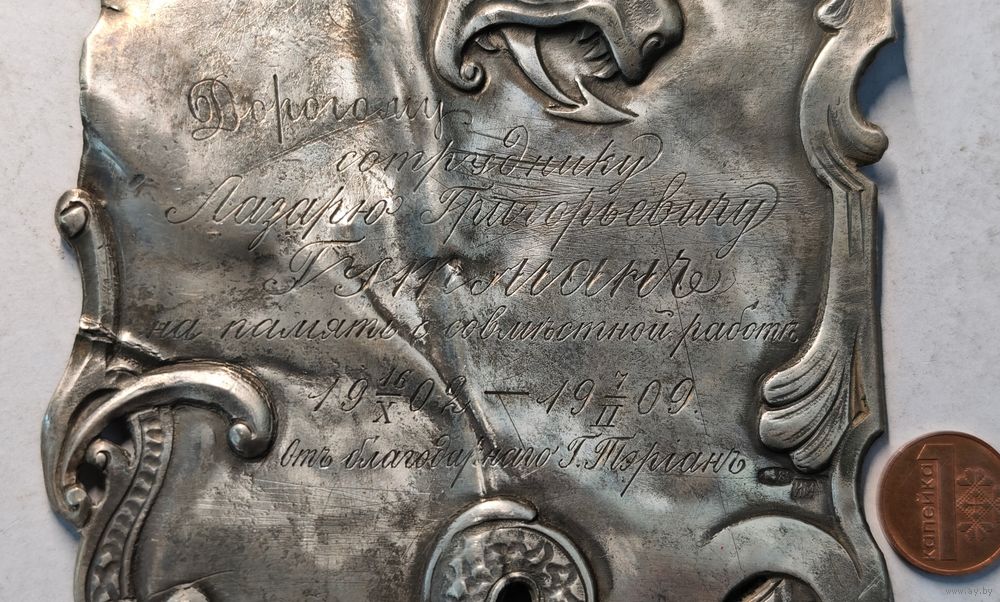 Дорогому
сотруднику
Лазарю Григорьевичу
на память о совмѣстной работѣ
19 16/X 02 — 19 7/II 09.
Отъ благодарнаго Г. Тэріанъ
1 КАПЕЙКА
www.ay.by